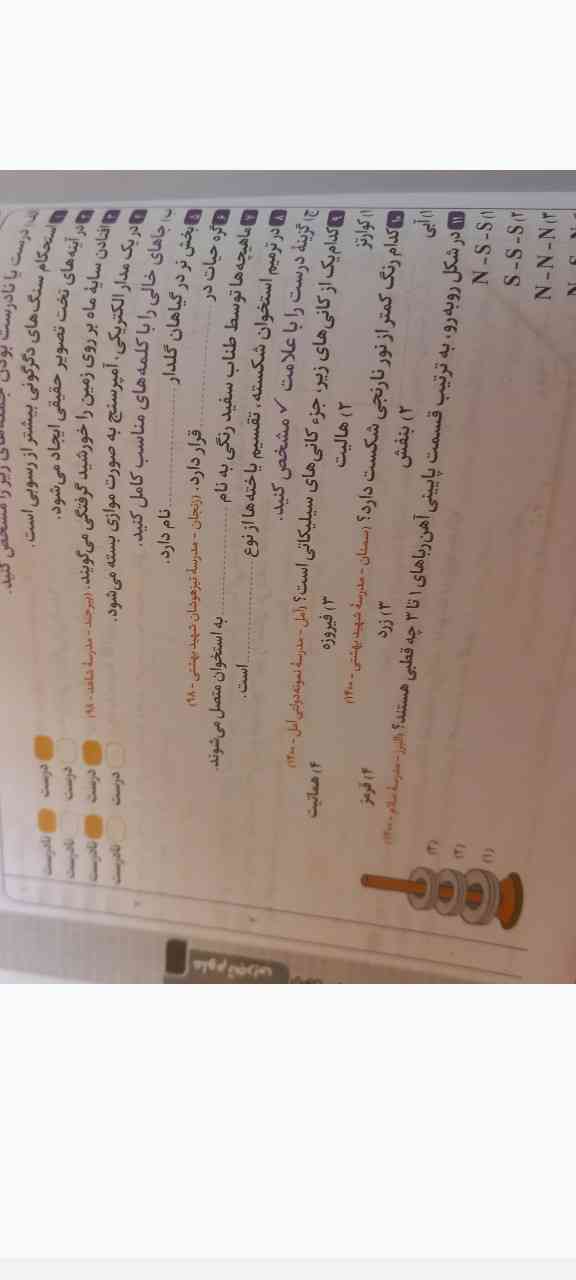 علوم تجربی
الف) درست یا نادرست بودن جمله‌های زیر را مشخص کنید.
۱ استحکام سنگ‌های دگرگونی بیشتر از رسوبی است.
درست نادرست
۲ در آینه‌های تخت تصویر حقیقی ایجاد می‌شود.
درست نادرست
۳ افتادن سایهٔ ماه بر روی زمین را خورشید گرفتگی می‌گویند. (بیرجند - مدرسهٔ شاهد - ۹۸)
درست نادرست
۴ در یک مدار الکتریکی، آمپرسنج به صورت موازی بسته می‌شود.
درست نادرست
ب) جاهای خالی را با کلمه‌های مناسب کامل کنید.
۵ بخش نر در گیاهان گلدار ............ نام دارد.
۶ گره حیات در ............ قرار دارد. (زنجان - مدرسهٔ تیزهوشان شهید بهشتی - ۹۸)
۷ ماهیچه‌ها توسط طناب سفید رنگی به نام ............ به استخوان متصل می‌شوند.
۸ در ترمیم استخوان شکسته، تقسیم یاخته‌ها از نوع ............ است.
ج) گزینهٔ درست را با علامت ✓ مشخص کنید.
۹ کدام یک از کانی‌های زیر، جزء کانی‌های سیلیکاتی است؟ (آمل - مدرسهٔ نمونه دولتی آمل - ۱۴۰۰)
۱) کوارتز ۲) هالیت ۳) فیروزه ۴) هماتیت
۱۰ کدام رنگ کمتر از نور نارنجی شکست دارد؟ (سمنان - مدرسهٔ شهید بهشتی - ۱۴۰۰)
۱) آبی ۲) بنفش ۳) زرد ۴) قرمز
۱۱ در شکل روبه‌رو، به ترتیب قسمت پایینی آهن‌رباهای ۱ تا ۳ چه قطبی هستند؟ (البرز - مدرسهٔ سلام - ۱۴۰۰)
۱) N - S - S
۲) S - S - S
۳) N - N - N
N - S - N
(۳)
(۲)
(۱)